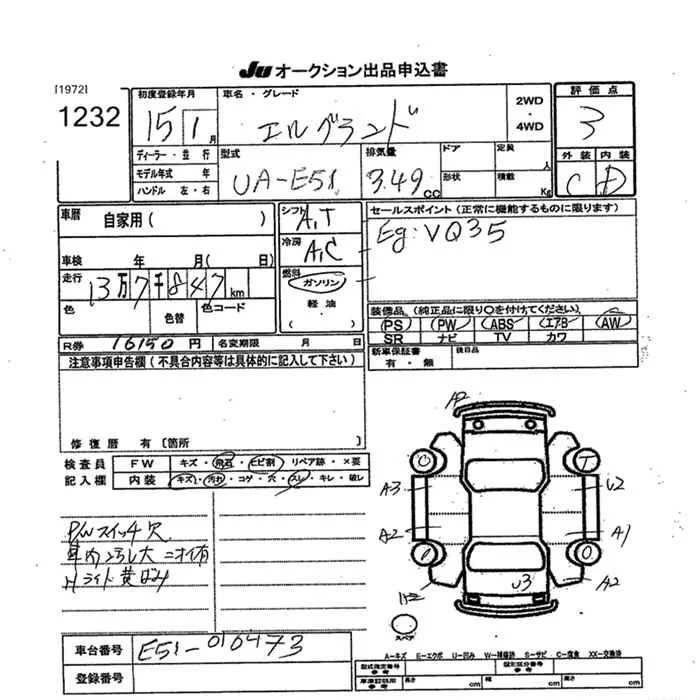 JU オークション出品申込書
[1972]
1232
初度登録年月 車名・グレード 2WD ・ 4WD 評価点
15 1月 エルグランド 3
ディーラー・並行 型式 排気量 ドア 定員 人 外装 内装
モデル年式 年 UA-E51 3.49 CC 形状 積載 Kg C D
ハンドル 左・右
車歴 自家用( ) シフト A,T セールスポイント(正常に機能するものに限ります)
冷房 A,C Eg:VQ35
車検 年 月( 日)
走行 13万7千847km 燃料 ガソリン
軽油
( )
色 色替 色コード 装備品(純正品に限り○を付けてください)
PS PW ABS エアB AW
SR ナビ TV カワ
R券 16150円 名変期限 月 日 新車保証書 有・無 後日品
注意事項申告欄(不具合内容等は具体的に記入して下さい)
修復歴 有[箇所 ]
検査員 FW キズ・飛石・ヒビ割 リペア跡・×要
記入欄 内装 キズ・汚れ・コゲ・穴・スレ・キレ・破レ
P/Wスイッチ欠
車内汚し大 ニオイ有
Hライト黄ばみ
A2
T
A3
U2
A2
A1
U3
A2
スペア
A-キズ E-エクボ U-凹み W-補修跡 S-サビ C-腐食 XX-交換済
車台番号 E51-010473
登録番号
型式指定番号 参考 類別区分番号 参考
車庫証明用 参考 長さ cm 幅 cm 高さ cm